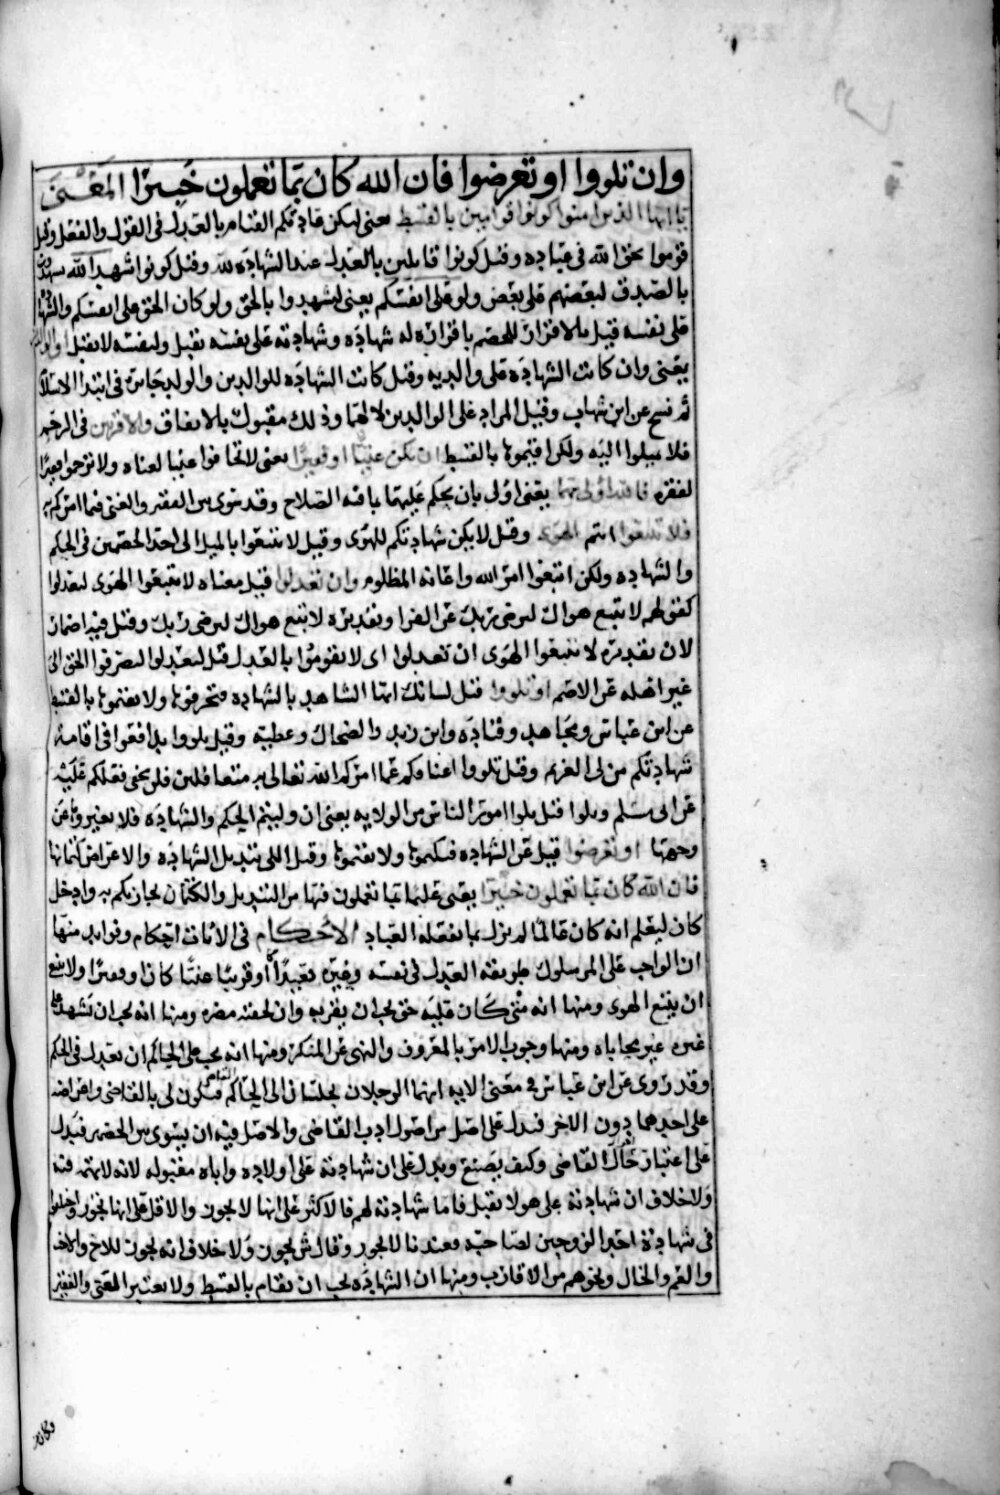 وان تلووا او تعرضوا فان الله كان بما تعملون خبيرا المعنى
يا ايها الذين امنوا كونوا قوامين بالقسط معنى ليكن عادتكم القيام بالعدل فى القول والفعل وقيل
قوموا بحق الله فى عباده وقيل كونوا قايلين بالعدل عند الشهادة لله وقيل كونوا شهدا لله يشهدون
بالصدق لبعضهم على بعض ولو على انفسكم يعنى ليشهدوا بالحق ولو كان الحق على انفسكم والشهادة
على نفسه قيل بالاقرار للخصم باقراره له شهادة وشهادته على نفسه تقبل ولنفسه لا تقبل او الوالدين
يعنى وان كانت الشهادة على والديه وقيل كانت الشهادة للوالدين والولد جايزة فى ابتدا الاسلام
ثم نسخ عن ابن شهاب وقيل المراد على الوالدين لا لهما وذلك مقبول بالاتفاق والاقربين فى الرحم
فلا تميلوا اليه ولكن اقيموها بالقسط ان يكن غنيا او فقيرا يعنى لا تخافوا غنيا لغناه ولا ترحموا فقيرا
لفقره فالله اولى بهما يعنى اولى بان يحكم عليهما بما فيه الصلاح وقد سوى بين الفقير والغنى فيما امركم به
فلا تتبعوا انتم الهوى وقيل لا يكن شهادتكم للهوى وقيل لا تتبعوا بالميل الى احد الخصمين فى الحكم
والشهادة ولكن اتبعوا امر الله واعانة المظلوم وان تعدلوا قيل معناه لا تتبعوا الهوى لتعدلوا
كقولهم لا تتبع هواك لترضى ربك عن الفرا وتقديره لا تتبع هواك لترضى ربك وقيل فيه اضمار
لان تقديره لا تتبعوا الهوى ان تعدلوا اى لا تقوموا بالعدل قيل لتعدلوا لتصرفوا الحق الى
غير اهله عن الاصم او تلووا قيل لسانك ايها الشاهد بالشهادة فتحرفوها ولا تقيموها بالقسط
عن ابن عباس ومجاهد وقتادة وابن زيد والضحاك وعطية وقيل تلووا تدافعوا فى اقامة
شهادتكم من لى الغريم وقيل تلووا اعناقكم عما امركم الله تعالى به متغافلين فلن يخفى فعلكم عليه
عن ابى مسلم وتلوا قيل تلوا امور الناس من الولاية يعنى ان وليتم الحكم والشهادة فلا تغيروها عن
وجهها او تعرضوا قيل عن الشهادة فتكتموها ولا تقيموها وقيل اللى تبديل الشهادة والاعراض كتمانها
فان الله كان بما تعملون خبيرا يعنى عليما بما تعملون فيها من التبديل والكتمان يجازيكم به وادخل
كان ليعلم انه كان عالما لم يزل بما يفعله العباد الاحكام فى الايات احكام وفوايد منها
ان الواجب على المر سلوك طريقة العدل فى نفسه وغيره بعيدا او قريبا غنيا كان او فقيرا ولا ينبغى
ان يتبع الهوى ومنها انه متى كان عليه حق يجب ان يقر به وان لحقته مضرة ومنها انه يجب ان يشهد على
غيره غير محاباة ومنها وجوب الامر بالمعروف والنهى عن المنكر ومنها انه يجب على الحاكم ان يعدل فى الحكم
وقد روى عن ابن عباس فى معنى الاية انهما الرجلان يجلسان الى الحاكم القاضى فيكون لى بالقاضى واعراضه
على احدهما دون الاخر فدل على اصل من اصول ادب القاضى والاصل فيه ان يسوى بين الخصمين فيدل
على اعتبار حال القاضى وكيف يصنع ويدل على ان شهادته على اولاده واباه مقبوله لانه لا تهمة فيه
ولا خلاف ان شهادته على هولا تقبل فاما شهادته لهم فالاكثر على انها لا تجوز والاقل على انها تجوز واختلفوا
فى شهادة احد الزوجين لصاحبه فعندنا لا تجوز وقال ش تجوز ولا خلاف انه تجوز للاخ والاخت
والعم والخال ونحوهم من الاقارب ومنها ان الشهادة يجب ان تقام بالقسط ولا يعتبر الغنى والفقر
وكان